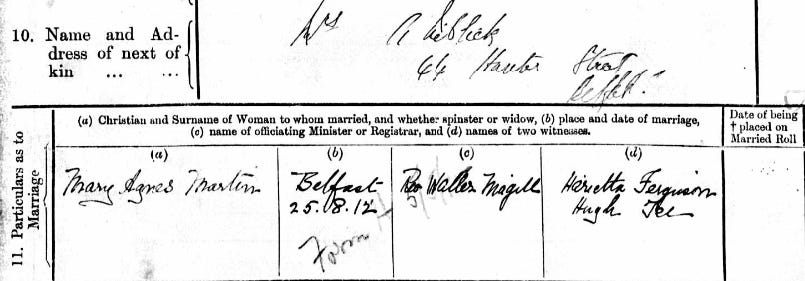 10. Name and Ad-
dress of next of
kin ... ...
Mrs A
64 Street
Belfast
(a) Christian and Surname of Woman to whom married, and whether spinster or widow, (b) place and date of marriage,
(c) name of officiating Minister or Registrar, and (d) names of two witnesses.
Date of being
† placed on
Married Roll
11. Particulars as to
Marriage
(a)
(b)
(c)
(d)
Mary Agnes Martin
Belfast
25.8.12
Rev Walter Magill
Harietta Ferguson
Hugh Tee
Form